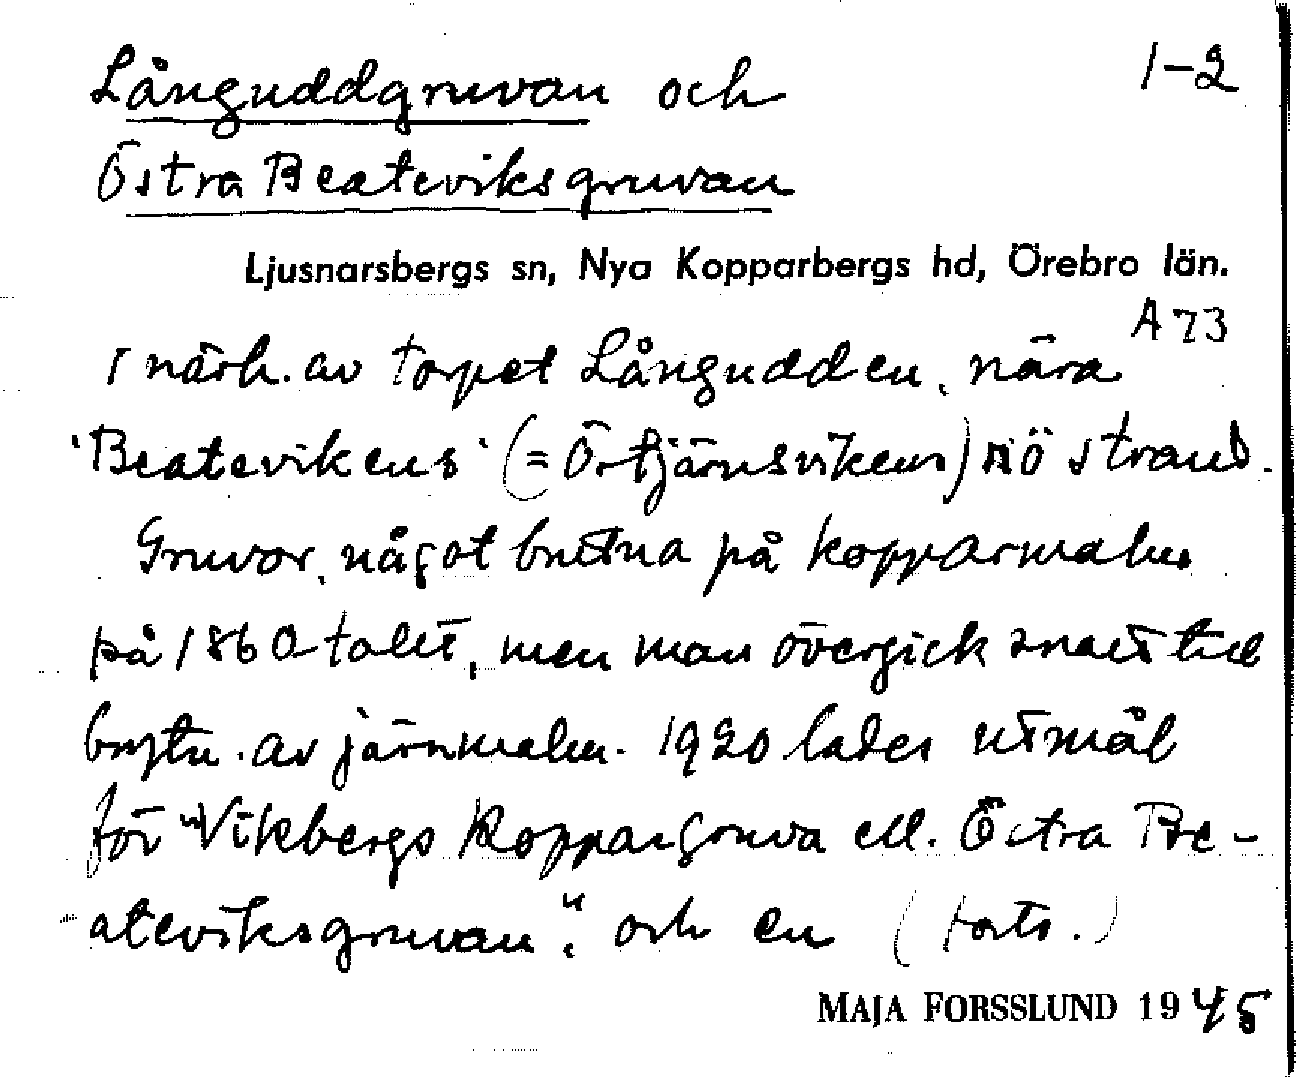 Långuddgruvan och 1-2
Östra Beateviksgruvan
Ljusnarsbergs sn, Nya Kopparbergs hd, Örebro län.
A 73
I närh. av torpet Långudden, nära
'Beatevikens' (= Örtjärnsvikens) nö strand.
Gruvor, något brutna på kopparmalm
på 1860talet, men man övergick snart till
brytn. av järnmalm. 1920 lades utmål
för "Vikbergs Koppargruva ell. Östra Be-
ateviksgruvan", och en (forts.)
MAJA FORSSLUND 1945